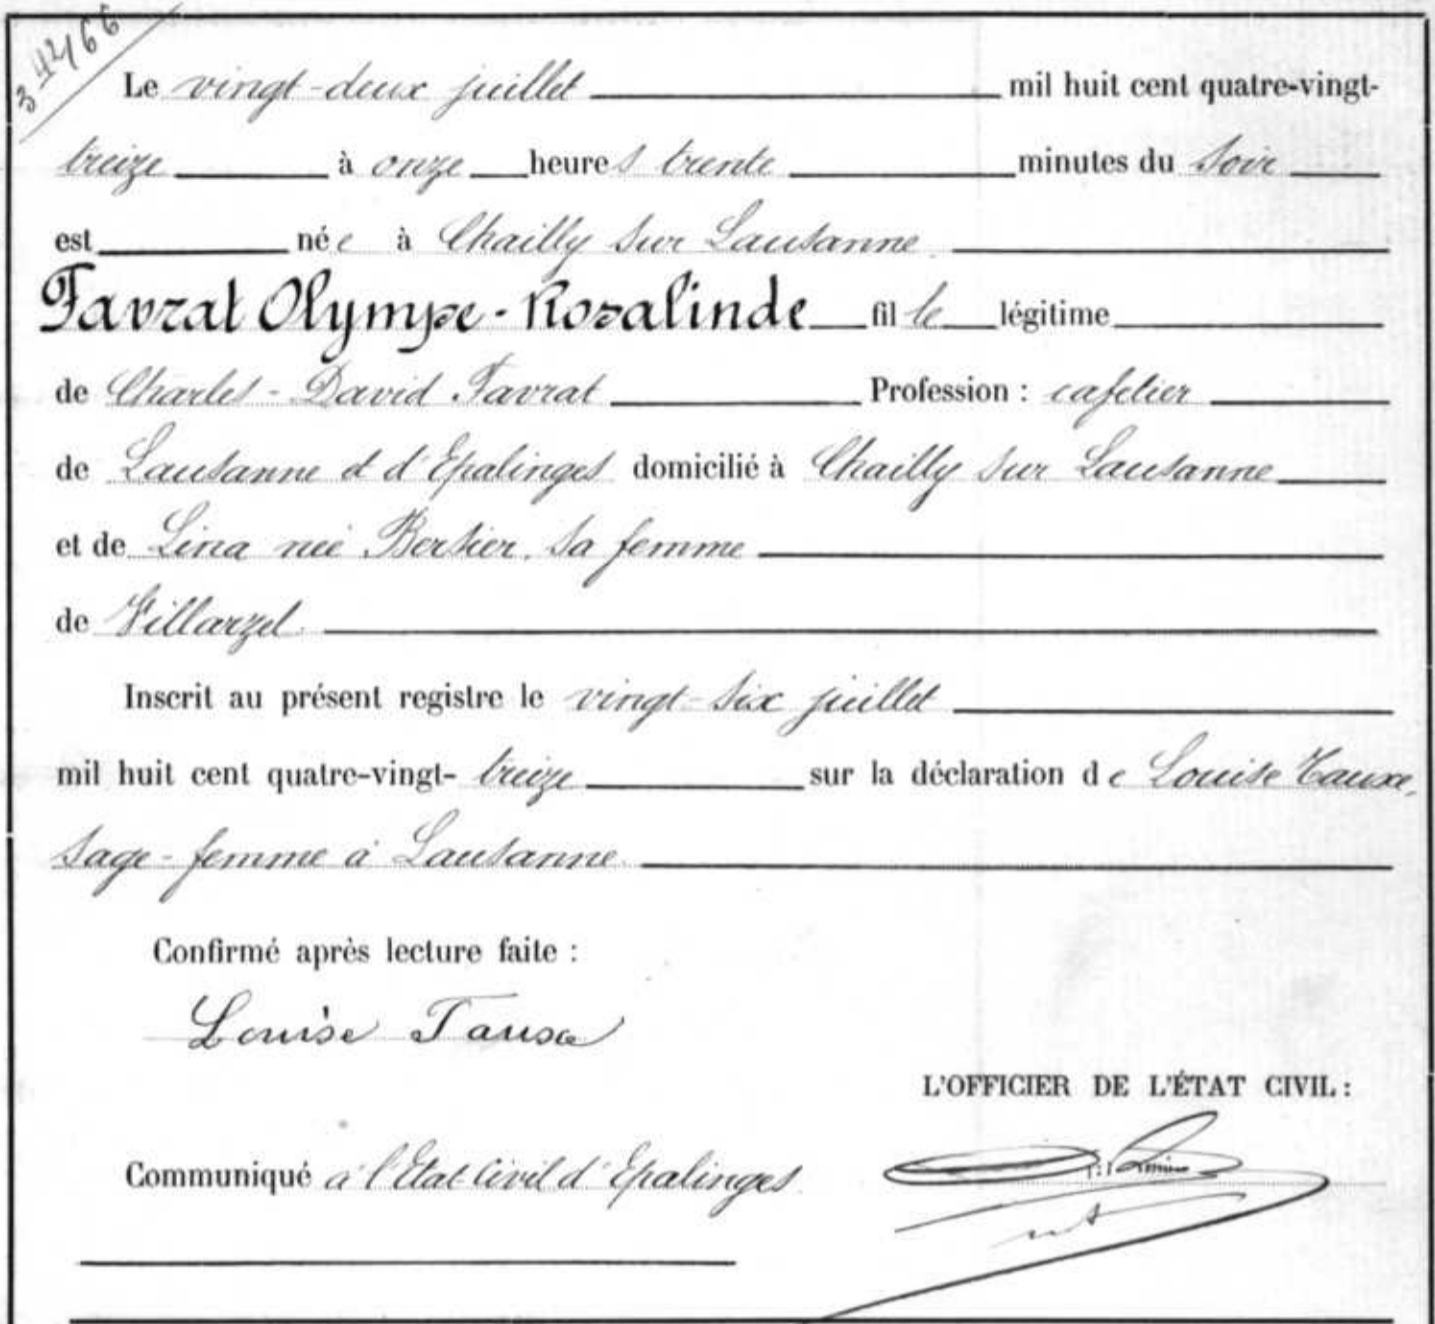 34266
Le vingt-deux juillet mil huit cent quatre-vingt-
treize à onze heures trente minutes du soir
est née à Chailly sur Lausanne
Favrat Olympe-Rosalinde fille légitime
de Charles-David Favrat Profession : cafetier
de Lausanne et d'Epalinges domicilié à Chailly sur Lausanne
et de Lina née Bersier, sa femme
de Villarzel.
Inscrit au présent registre le vingt-six juillet
mil huit cent quatre-vingt-treize sur la déclaration de Louise Tauxe,
sage-femme à Lausanne.
Confirmé après lecture faite :
Louise Tauxe
L'OFFICIER DE L'ÉTAT CIVIL :
Communiqué à l'Etat-Civil d'Epalinges